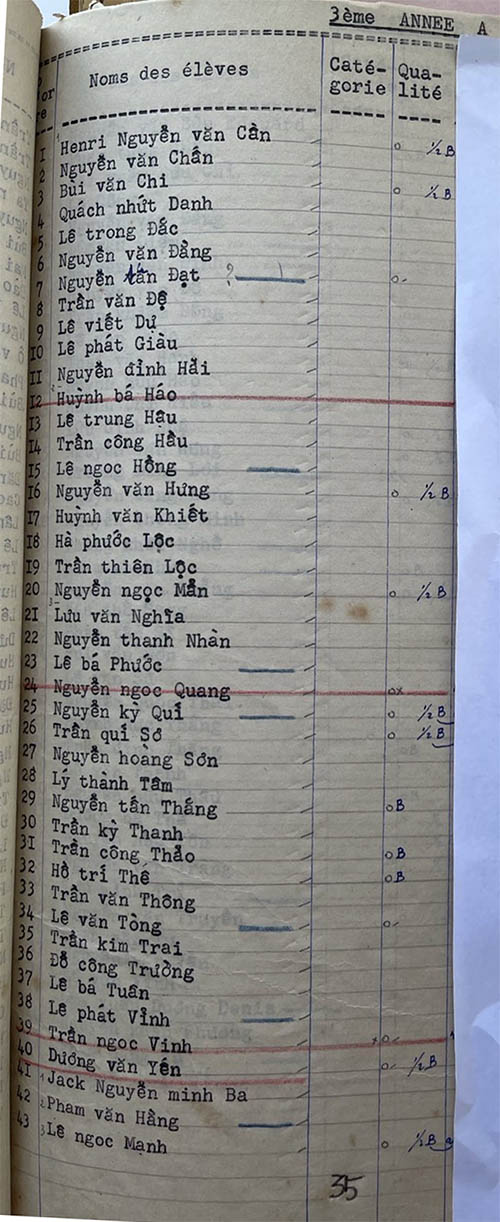 3ème ANNEE A
Noms des élèves Caté- Qua-
gorie lité
1 Henri Nguyễn văn Cẩn o ½ B
2 Nguyễn văn Chẩn
3 Bùi văn Chi o ½ B
4 Quách nhứt Danh
5 Lê trong Đắc
6 Nguyễn văn Đằng
7 Nguyễn tấn Đạt ? o-
8 Trần văn Đệ
9 Lê viết Dự
10 Lê phát Giàu
11 Nguyễn đình Hải
12 Huỳnh bá Háo
13 Lê trung Hậu
14 Trần công Hầu
15 Lê ngoc Hồng
16 Nguyễn văn Hưng o ½ B
17 Huỳnh văn Khiết
18 Hà phước Lộc
19 Trần thiên Lộc
20 Nguyễn ngọc Mẫn o ½ B
21 Lưu văn Nghĩa
22 Nguyễn thanh Nhàn
23 Lê bá Phước
24 Nguyễn ngoc Quang ox
25 Nguyễn kỳ Quí o ½ B
26 Trần quí Sơ o ½ B
27 Nguyễn hoàng Sơn
28 Lý thành Tâm
29 Nguyễn tấn Thắng o B
30 Trần kỳ Thanh
31 Trần công Thảo o B
32 Hồ trí Thê o B
33 Trần văn Thông
34 Lê văn Tòng o-
35 Trần kim Trai
36 Đỗ công Trường
37 Lê bá Tuân
38 Lê phát Vĩnh
39 Trần ngoc Vinh x o-
40 Dương văn Yến o- ½ B
41 1 Jack Nguyễn minh Ba
42 2 Pham văn Hằng
43 3 Lê ngoc Mạnh o ½ B
35